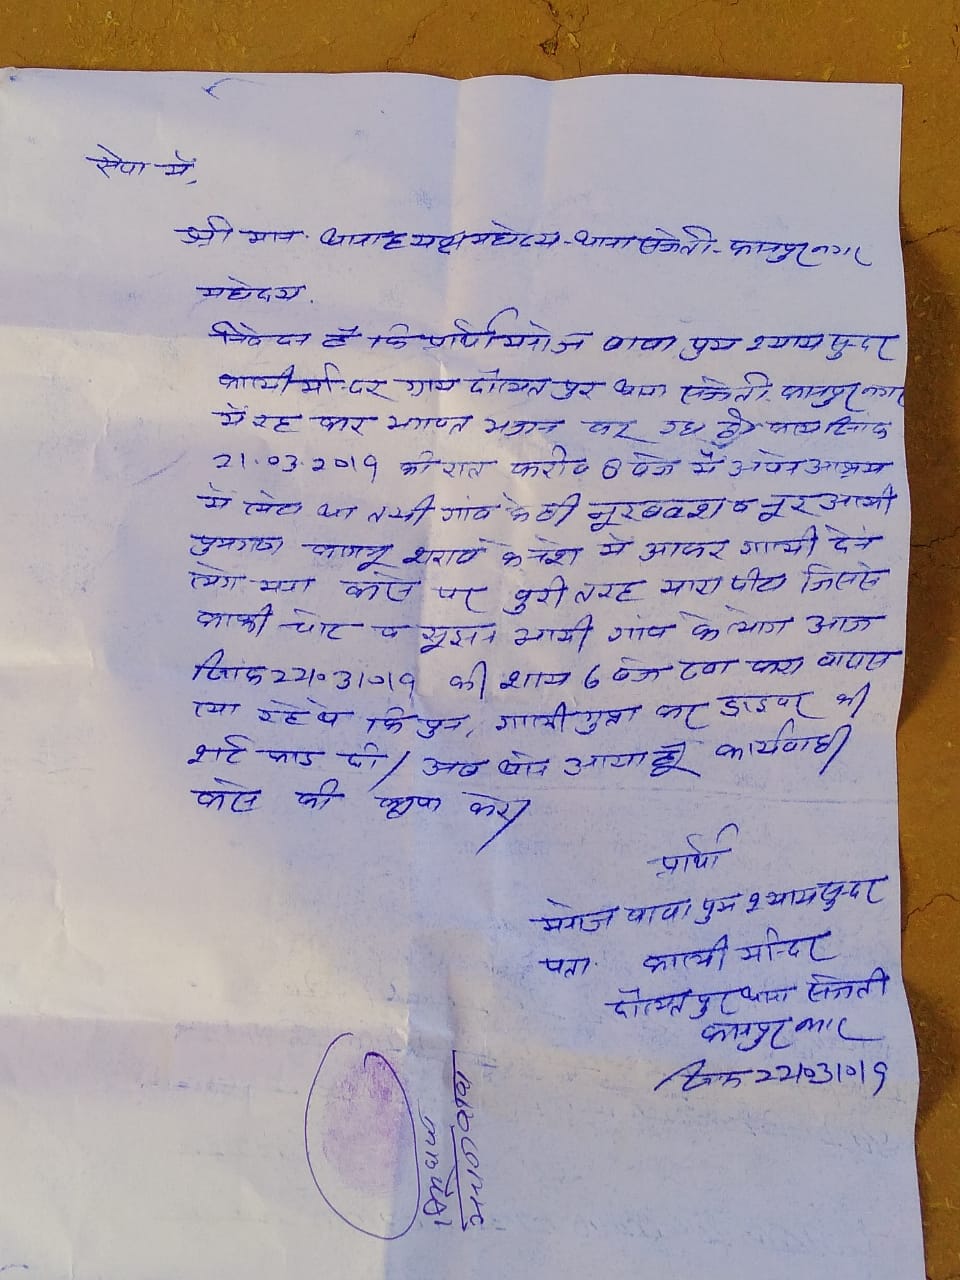 सेवा में,
श्री मान थानाध्यक्ष महोदय थाना सजेती कानपुर नगर
महोदय
निवेदन है कि प्रार्थी मनोज बाबा पुत्र श्याम सुन्दर
काली मन्दिर ग्राम दौलतपुर थाना सजेती कानपुर नगर
में रह कर भगवत भजन कर रहा है
21.03.2019 की रात करीब 8 बजे मैं अपने आश्रम
में लेटा था तभी गांव के ही नूरबक्श व नूर आलमी
शराब के नशे में आकर गाली देने
लगे मना करने पर बुरी तरह मारा पीटा जिससे
काफी चोट व सूजन आयी गांव के लोग आज
दिनांक 22/03/019 की शाम 6 बजे दवा करा वापस
ला रहे थे कि पुनः गाली गुप्ता कर ड्राइवर की
शर्ट फाड दी / अब थाने आया हूँ कार्यवाही
करने की कृपा करें /
प्रार्थी
मनोज बाबा पुत्र श्याम सुन्दर
पता काली मन्दिर
दौलतपुर थाना सजेती
कानपुर नगर
दिनांक 22/03/019